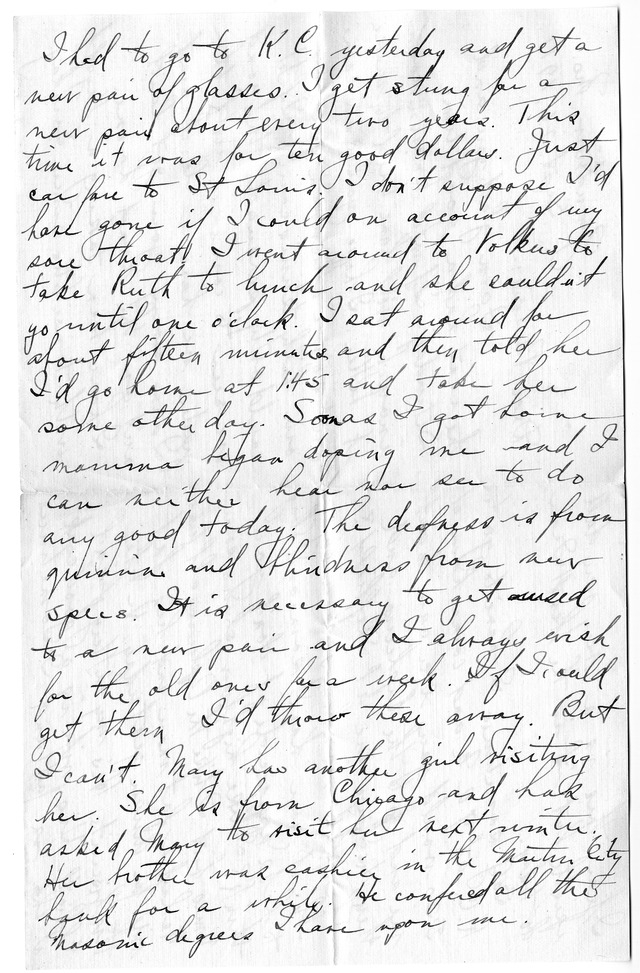 I had to go to K.C. yesterday and get a
new pair of glasses. I get stung for a
new pair about every two years. This
time it was for ten good dollars. Just
car fare to St Louis. I don't suppose I'd
have gone if I could on account of my
sore throat. I went around to Volkers to
take Ruth to lunch and she couldn't
go until one o'clock. I sat around for
about fifteen minutes and then told her
I'd go home at 1:45 and take her
some other day. Soon as I got home
mamma began doping me and I
can neither hear nor see to do
any good today. The deafness is from
quinine and blindness from new
specs. It is necessary to get used
to a new pair and I always wish
for the old ones for a week. If I could
get them I'd throw these away. But
I can't. Mary has another girl visiting
her. She is from Chicago and has
asked Mary to visit her next winter.
Her brother was cashier in the Martin City
bank for a while. He confered all the
Masonic degrees I have upon me.